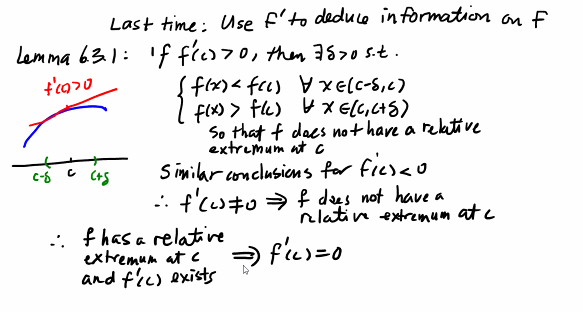 Last time: Use f' to deduce information on f
Lemma 6.3.1: If f'(c) > 0, then ∃ δ > 0 s.t.
f'(c) > 0
{ f(x) < f(c) ∀ x ∈ (c-δ, c)
f(x) > f(c) ∀ x ∈ (c, c+δ)
So that f does not have a relative
extremum at c
c-δ c c+δ
Similar conclusions for f'(c) < 0
∴ f'(c) ≠ 0 ⇒ f does not have a
relative extremum at c
∴ f has a relative
extremum at c ⇒ f'(c) = 0
and f'(c) exists